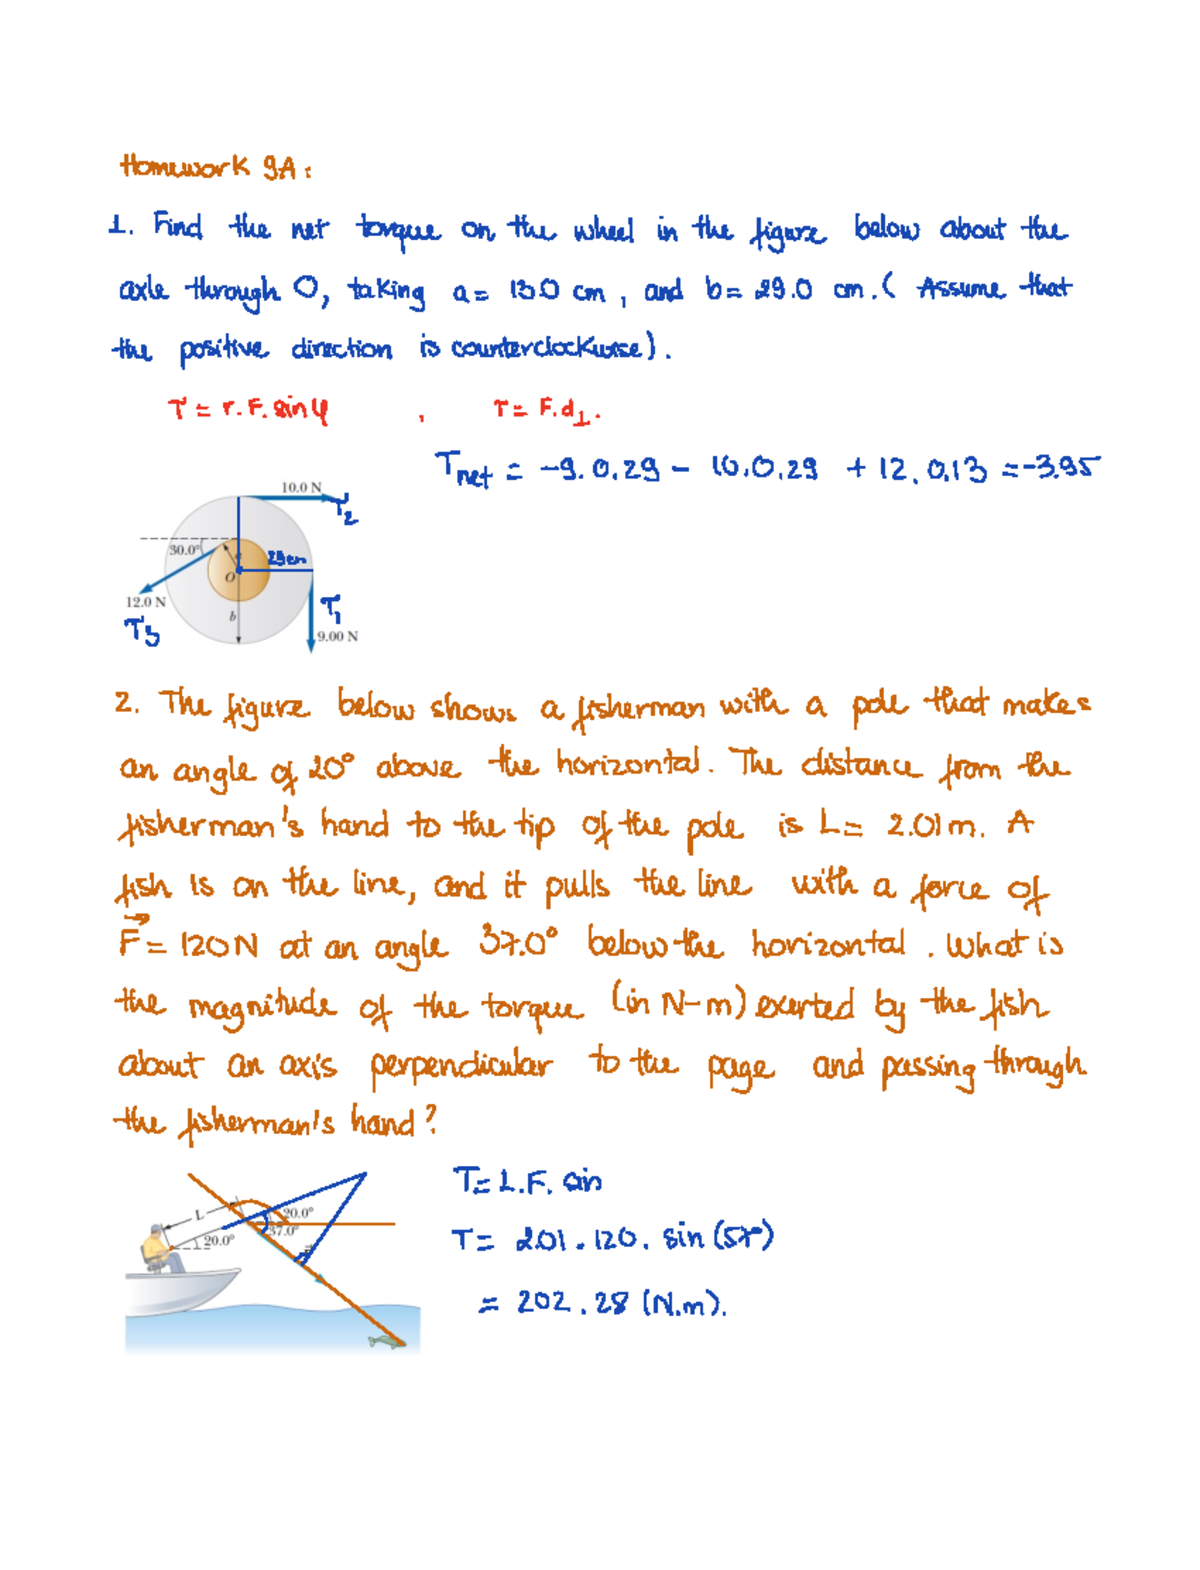 Homework 9A:
1. Find the net torque on the wheel in the figure below about the
axle through O, taking a = 13.0 cm, and b = 29.0 cm. ( Assume that
the positive direction is counterclockwise).
τ = r. F. sin φ , τ = F. d⊥.
τnet = -9. 0.29 - 10.0.29 + 12. 0.13 = -3.95
10.0 N τ2
30.0°
29cm
O
12.0 N τ1
τ3 b
9.00 N
2. The figure below shows a fisherman with a pole that makes
an angle of 20° above the horizontal. The distance from the
fisherman's hand to the tip of the pole is L = 2.01 m. A
fish is on the line, and it pulls the line with a force of
F⃗ = 120N at an angle 37.0° below the horizontal. What is
the magnitude of the torque (in N-m) exerted by the fish
about an axis perpendicular to the page and passing through
the fisherman's hand?
τ = L.F. sin
L 20.0°
37.0°
20.0°
τ = 2.01 . 120. sin (57°)
= 202.28 (N.m).